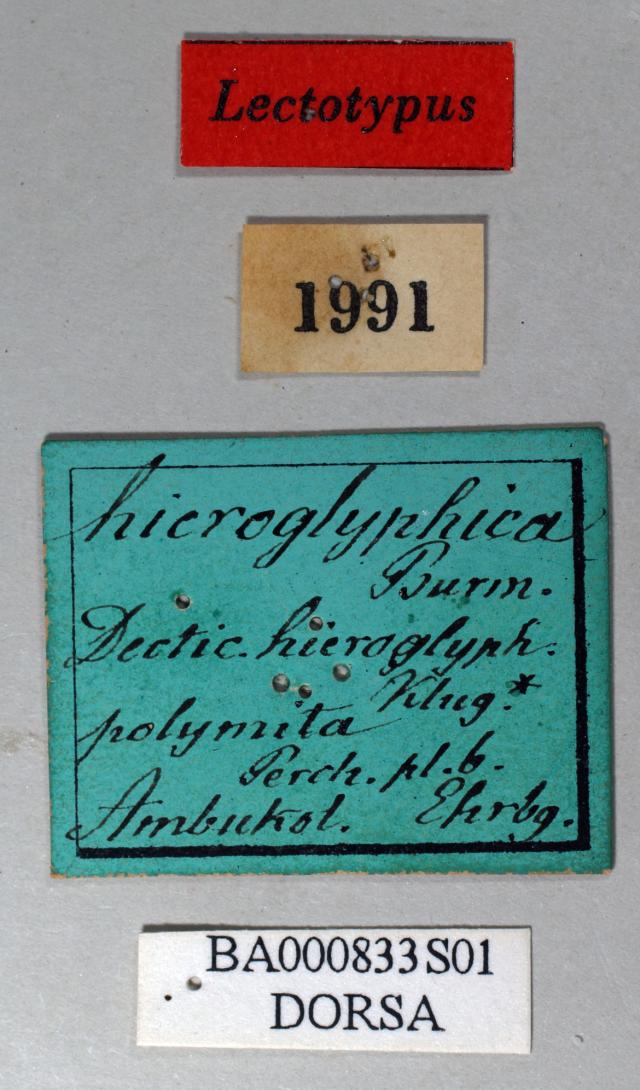 Lectotypus
1991
hieroglyphica
Burm.
Dectic. hieroglyph.
Klug.*
polymita
Perch. pl. 6.
Ambukol. Ehrbg.
BA000833S01
DORSA